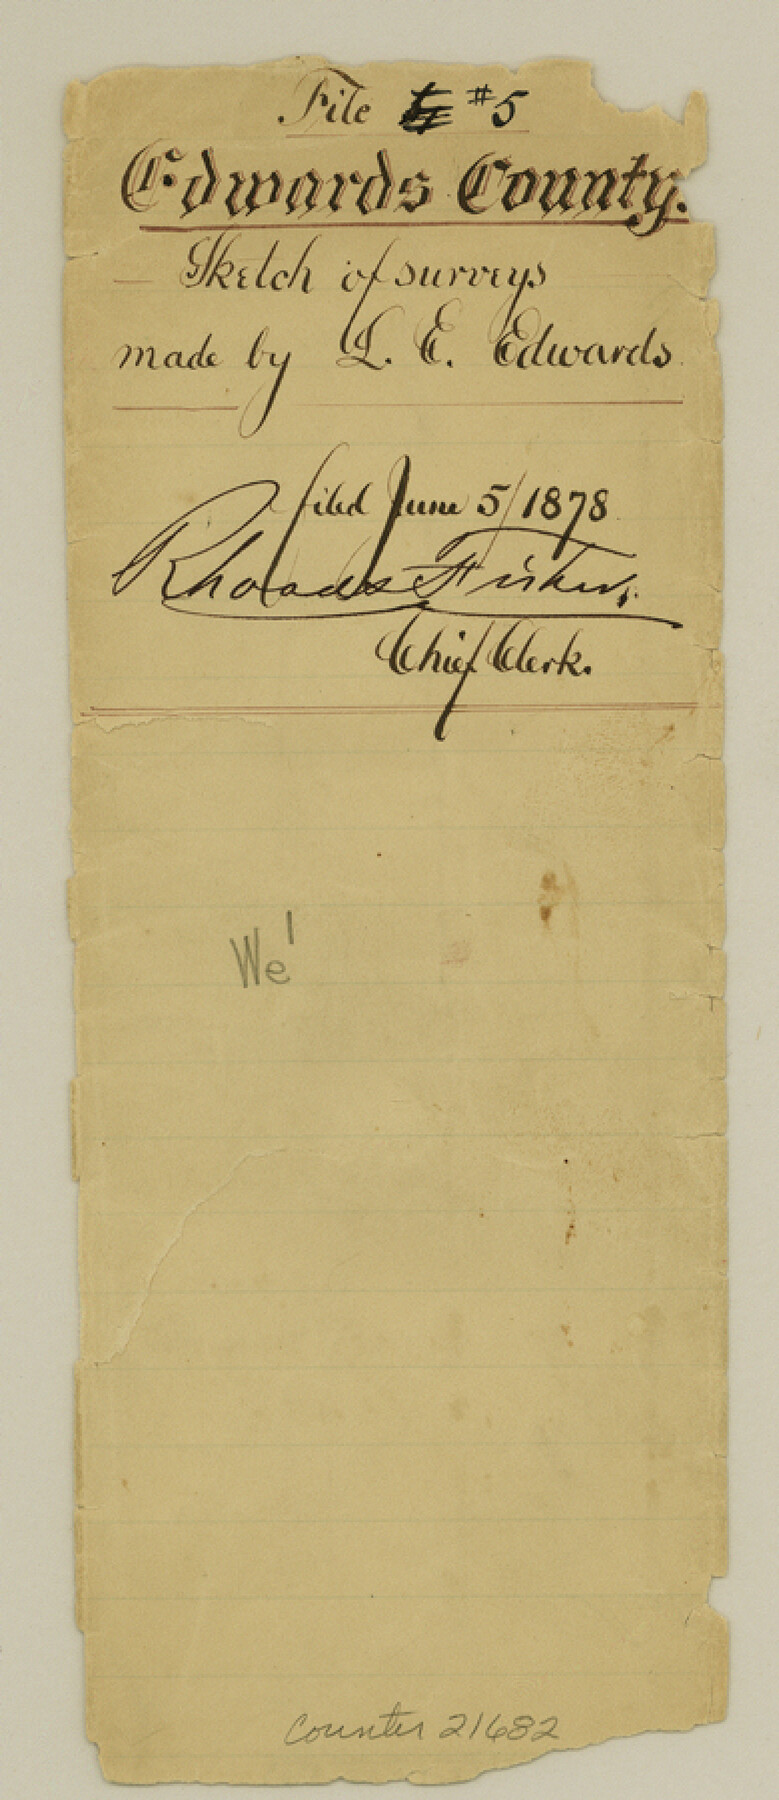 File #5
Edwards County.
Sketch of surveys
made by L. E. Edwards
filed June 5/1878
Rhoads Fisher,
Chief Clerk.
We'
Counter 21682